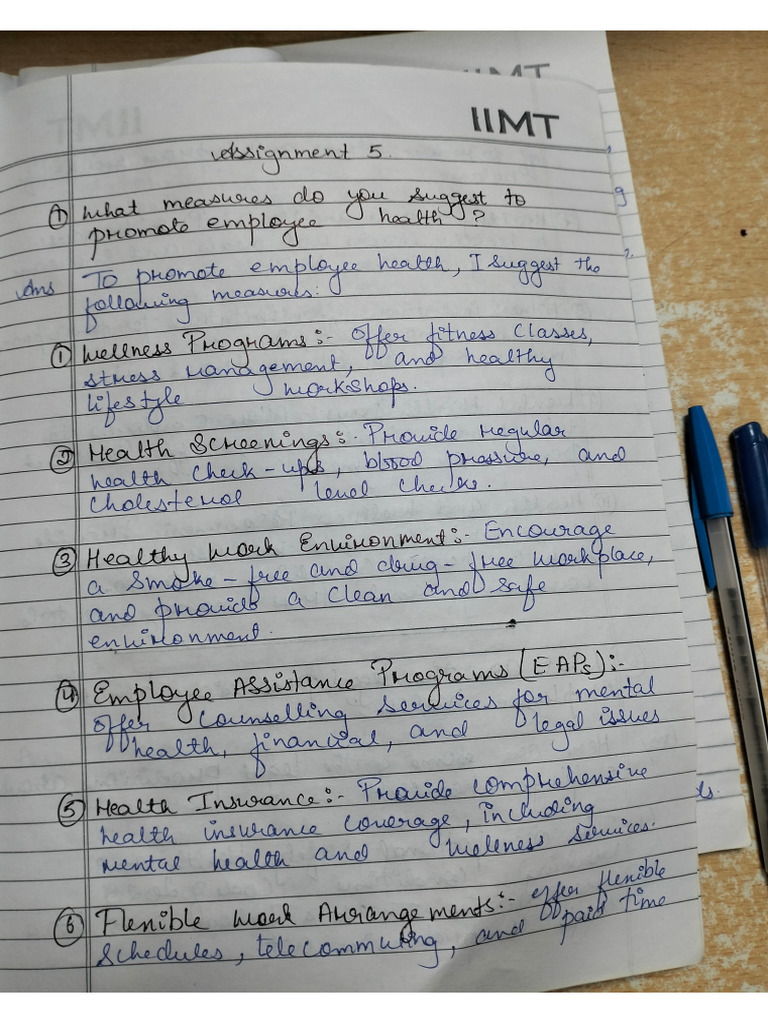 IIMT
IIMT
Assignment 5.
① What measures do you suggest to
promote employee health ?
Ans To promote employee health, I suggest the
following measures:
① Wellness Programs:- Offer fitness classes,
stress management, and healthy
lifestyle workshops.
② Health Screenings:- Provide regular
health check-ups, blood pressure, and
cholesterol level checks.
③ Healthy Work Environment:- Encourage
a smoke-free and drug-free workplace,
and provide a clean and safe
environment.
④ Employee Assistance Programs (EAPs):-
offer counselling services for mental
health, financial, and legal issues
⑤ Health Insurance:- Provide comprehensive
health insurance coverage, including
mental health and wellness services.
⑥ Flexible Work Arrangements:- offer flexible
schedules, telecommuting, and paid time